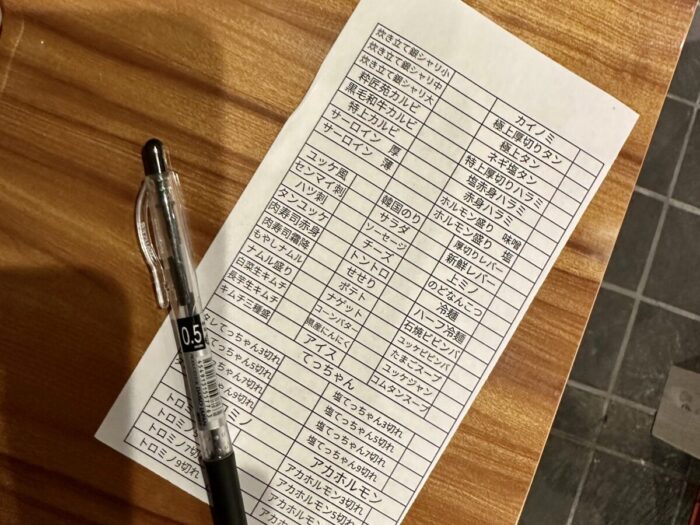 炊き立て銀シャリ小
炊き立て銀シャリ中
炊き立て銀シャリ大
粋匠苑カルビ
黒毛和牛カルビ
特上カルビ
サーロイン 厚
サーロイン 薄
カイノミ
極上厚切りタン
極上タン
ネギ塩タン
特上厚切りハラミ
塩赤身ハラミ
赤身ハラミ
ホルモン盛り 味噌
ホルモン盛り 塩
ユッケ風
センマイ刺
ハツ刺
タンユッケ
肉寿司赤身
肉寿司霜降
もやしナムル
ナムル盛り
白菜生キムチ
長芋生キムチ
キムチ三種盛
韓国のり
サラダ
ソーセージ
チーズ
トントロ
せせり
ポテト
ナゲット
コーンバター
県産にんにく
アイス
厚切りレバー
新鮮レバー
上ミノ
のどなんこつ
冷麺
ハーフ冷麺
石焼ビビンバ
ユッケビビンバ
たまごスープ
ユッケジャン
コムタンスープ
てっちゃん
てっちゃん3切れ
てっちゃん5切れ
てっちゃん7切れ
てっちゃん9切れ
ミノ
トロミノ
トロミノ7切
トロミノ9切れ
塩てっちゃん3切れ
塩てっちゃん5切れ
塩てっちゃん7切れ
塩てっちゃん9切れ
アカホルモン
アカホルモン3切れ
アカホルモン5切れ
アカホルモン
0.5